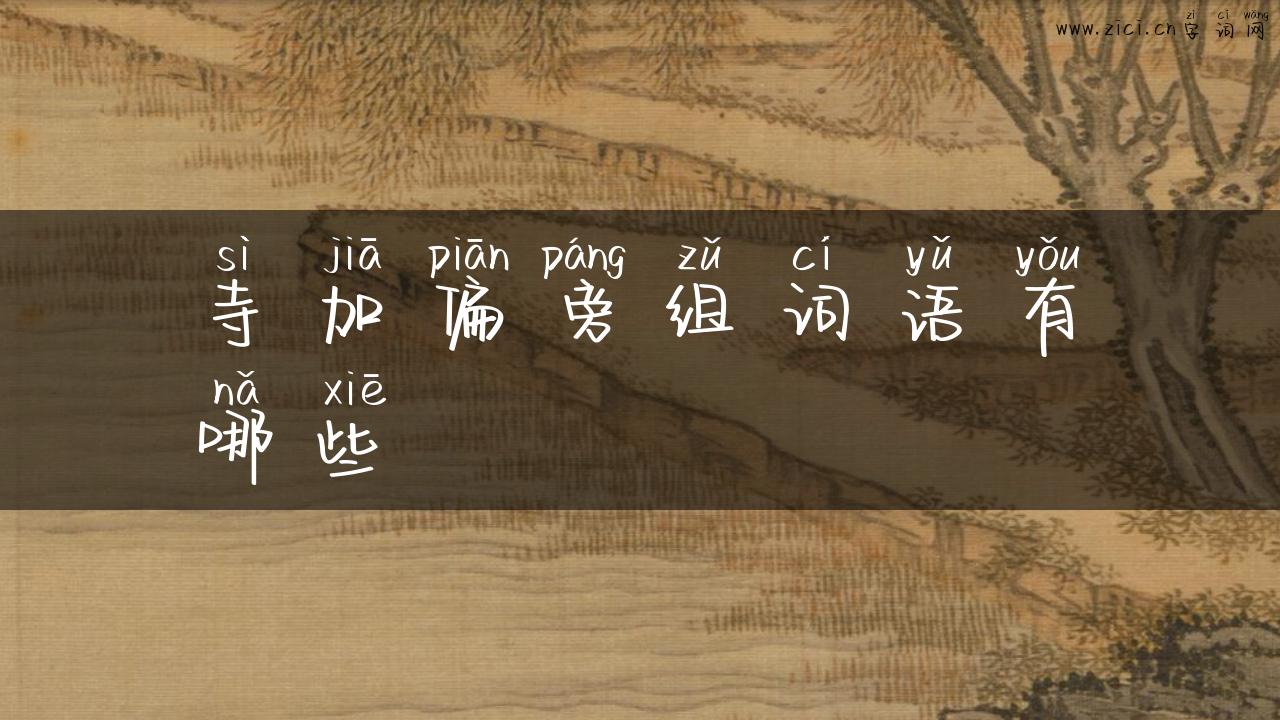 zì cí wǎng
www.zici.cn 字词网
sì jiā piān páng zǔ cí yǔ yǒu
寺加偏旁组词语有
nǎ xiē
哪些